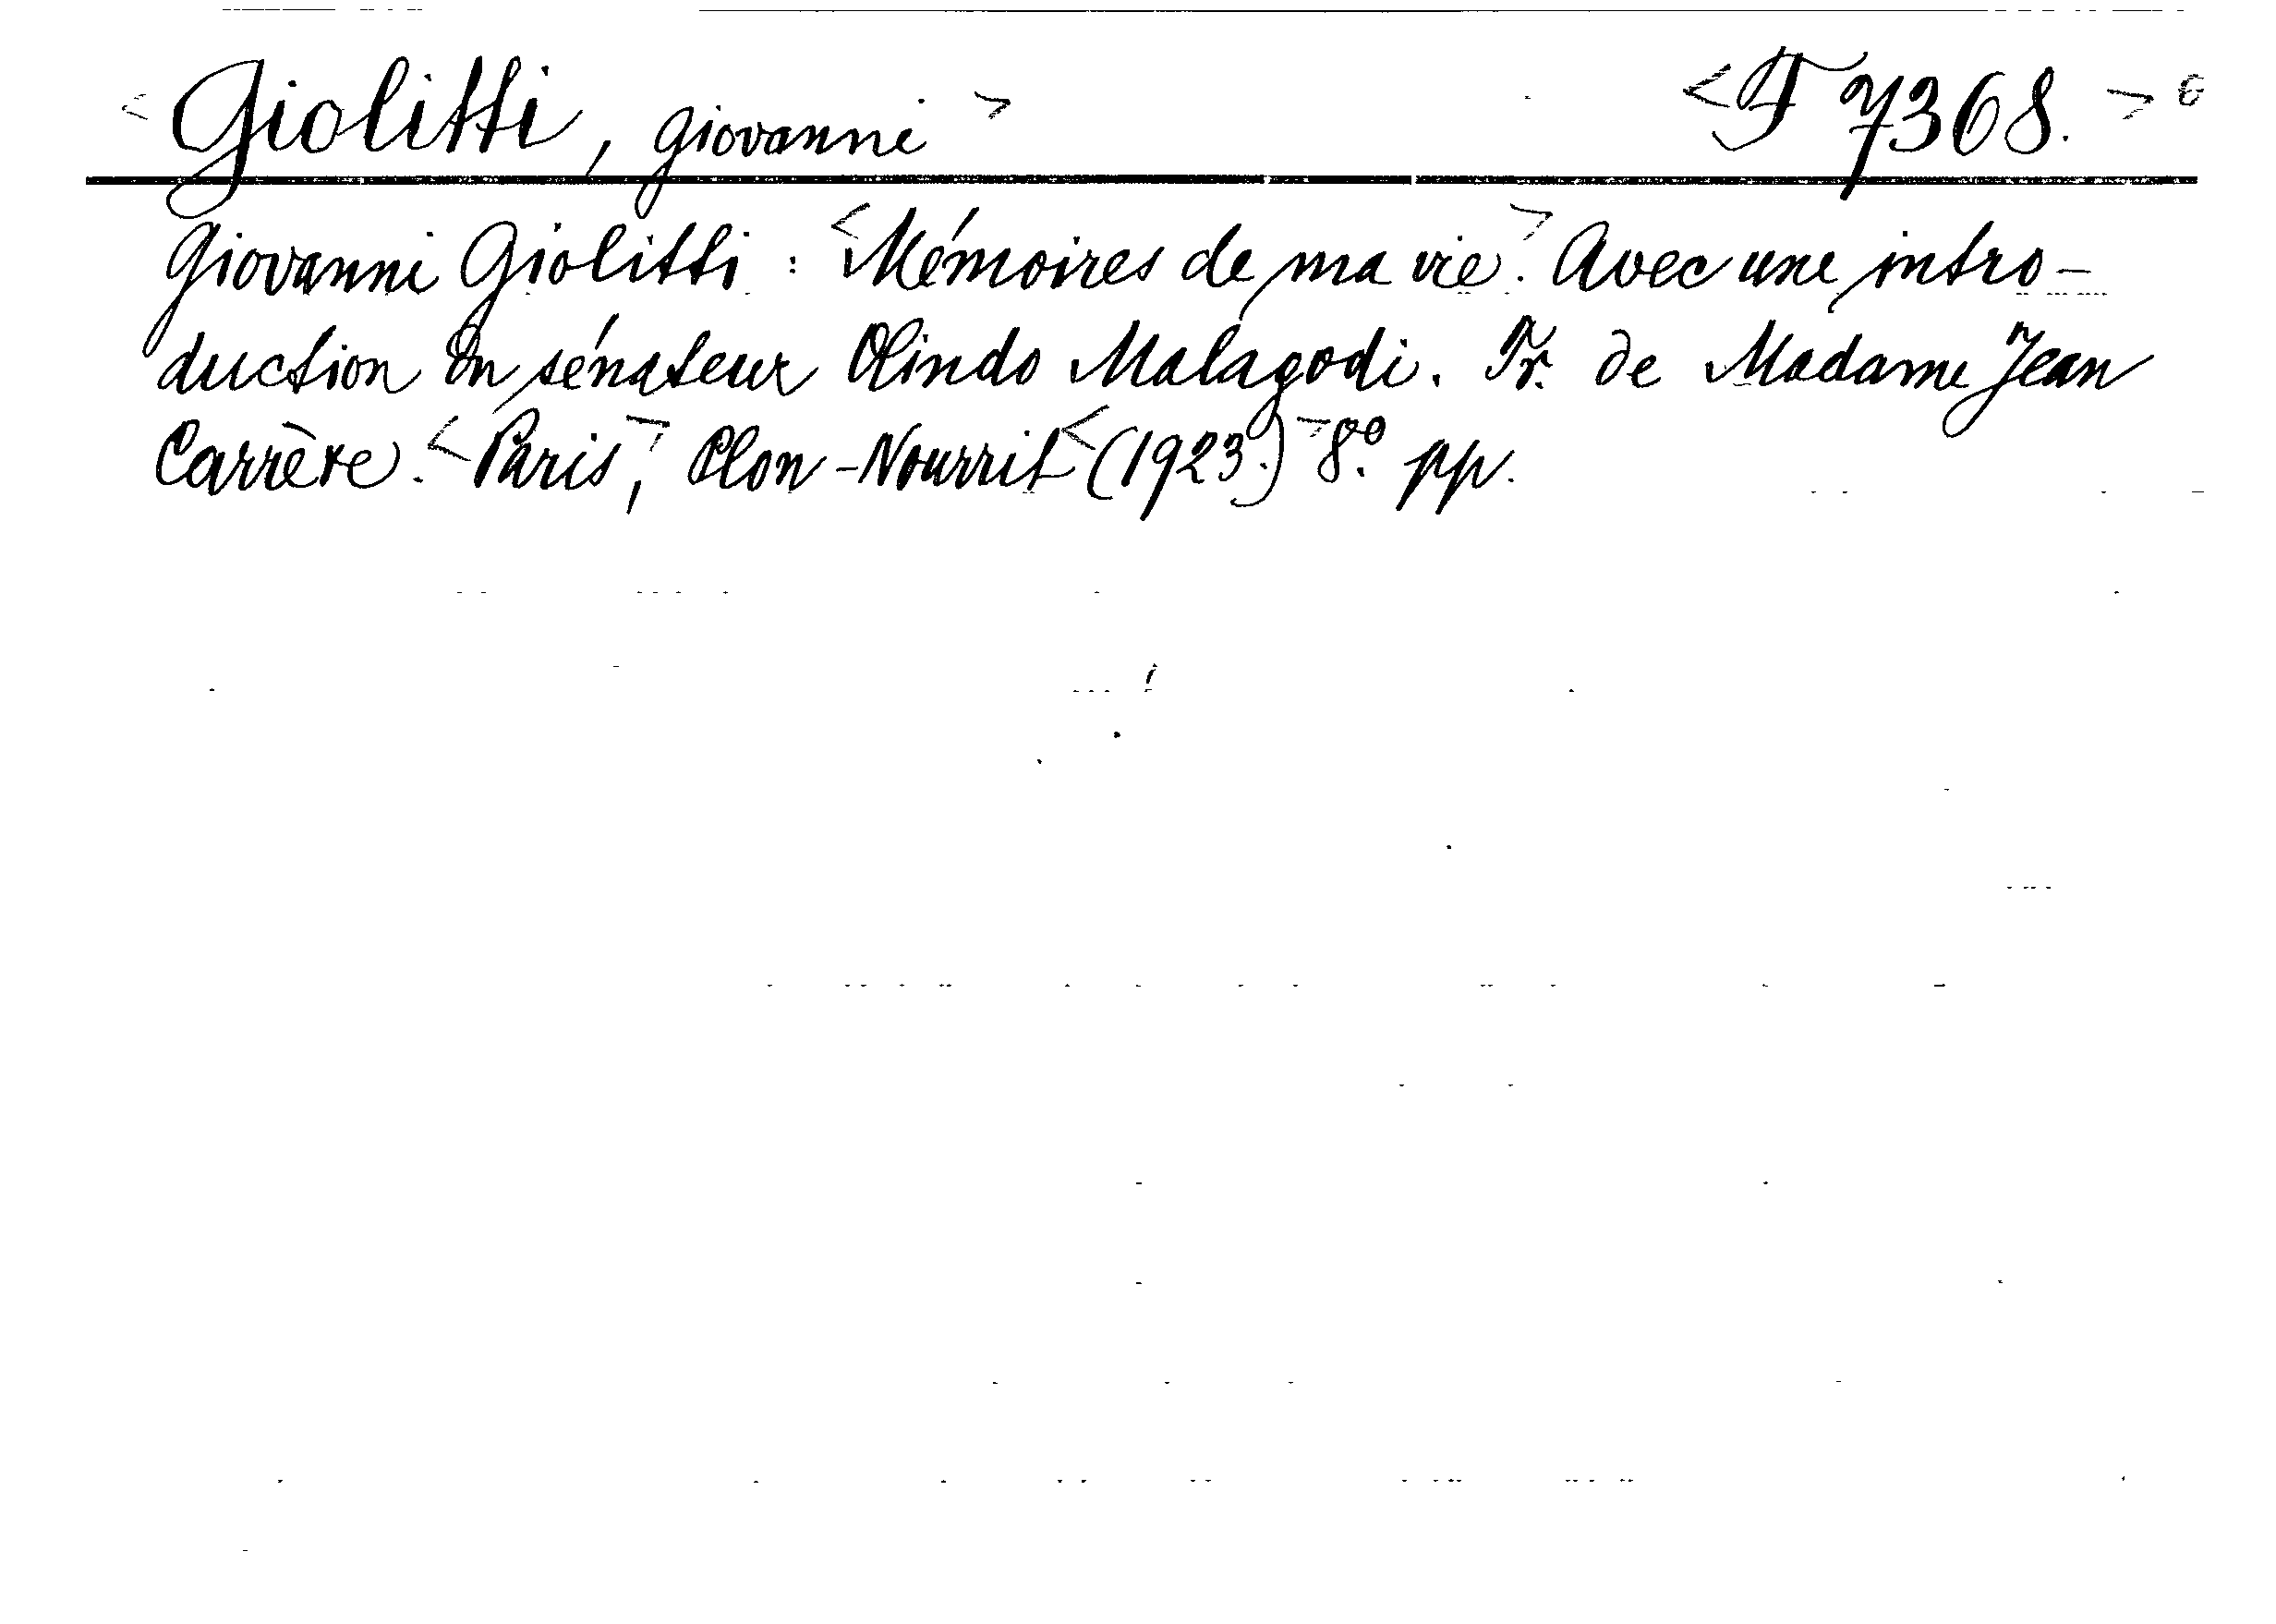 < Giolitti, Giovanni > <F 7368. > G
Giovanni Giolitti : <Mémoires de ma vie>. Avec une intro-
duction du sénateur Olindo Malagodi. Tr. de Madame Jean
Carrère. <Paris>, Plon-Nourrit <(1923.)> 8º. pp.